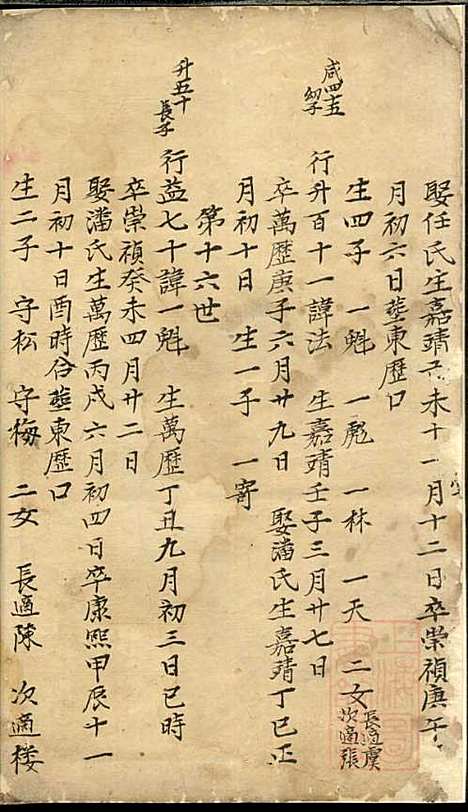 娶任氏生嘉靖己未十一月十二日卒崇禎庚午
月初六日塟東歷口
生四子 一魁 一彪 一林 一天 二女 長適虞 次適張
咸四十五 幼子
行升百十一諱法 生嘉靖壬子三月廿七日
卒萬歷庚子六月廿九日 娶潘氏生嘉靖丁巳正
月初十日 生一子 一寄
第十六世
升五十 長子
行益七十諱一魁 生萬歷丁丑九月初三日巳時
卒崇禎癸未四月廿二日
娶潘氏生萬歷丙戌六月初四日卒康熙甲辰十一
月初十日酉時合塟東歷口
生二子 守松 守梅 二女 長適陳 次適楼